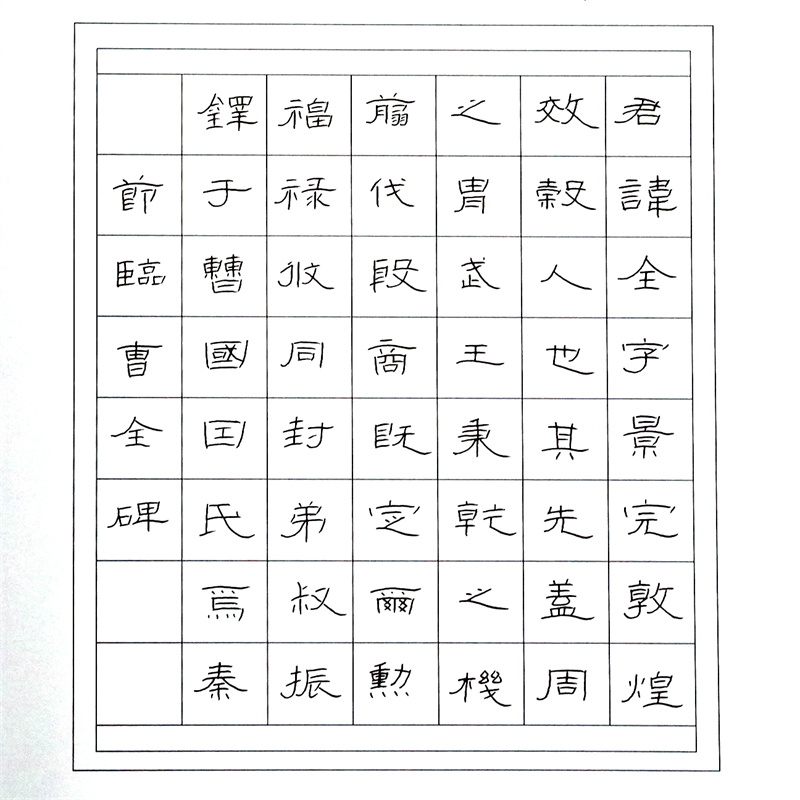 君諱全字景完敦煌
效穀人也其先蓋周
之胄武王秉乾之機
翦伐殷商既定爾勳
福禄攸同封弟叔振
鐸于曹國因氏焉秦
節臨曹全碑